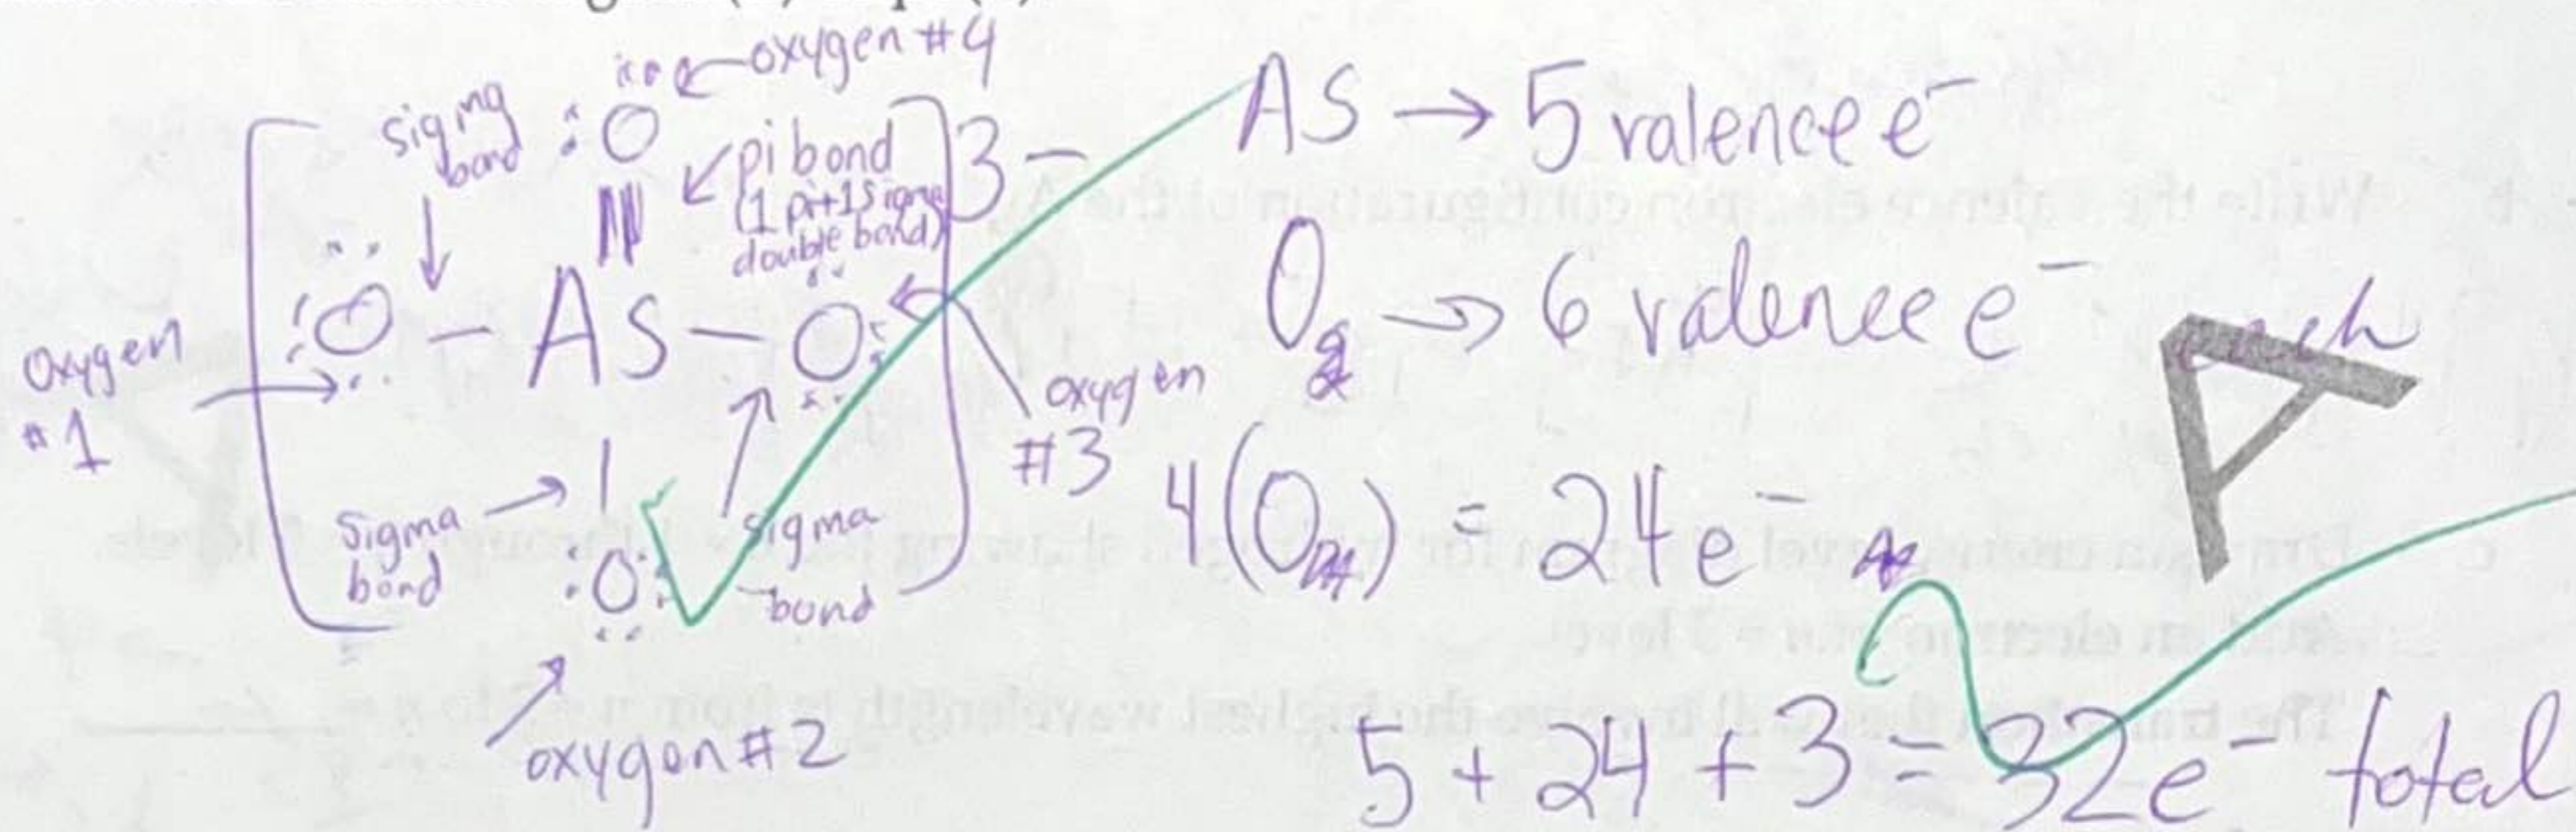 oxygen #4
sigma
bond
:O
pi bond
(1 pi+1 sigma
double bond)
3-
:O - AS - O:
Oxygen
#1
oxygen
#3
sigma
bond
:O:
sigma
bond
oxygen #2
AS → 5 valence e⁻
O → 6 valence e⁻ each
4(O) = 24 e⁻
5 + 24 + 3 = 32 e⁻ total
A